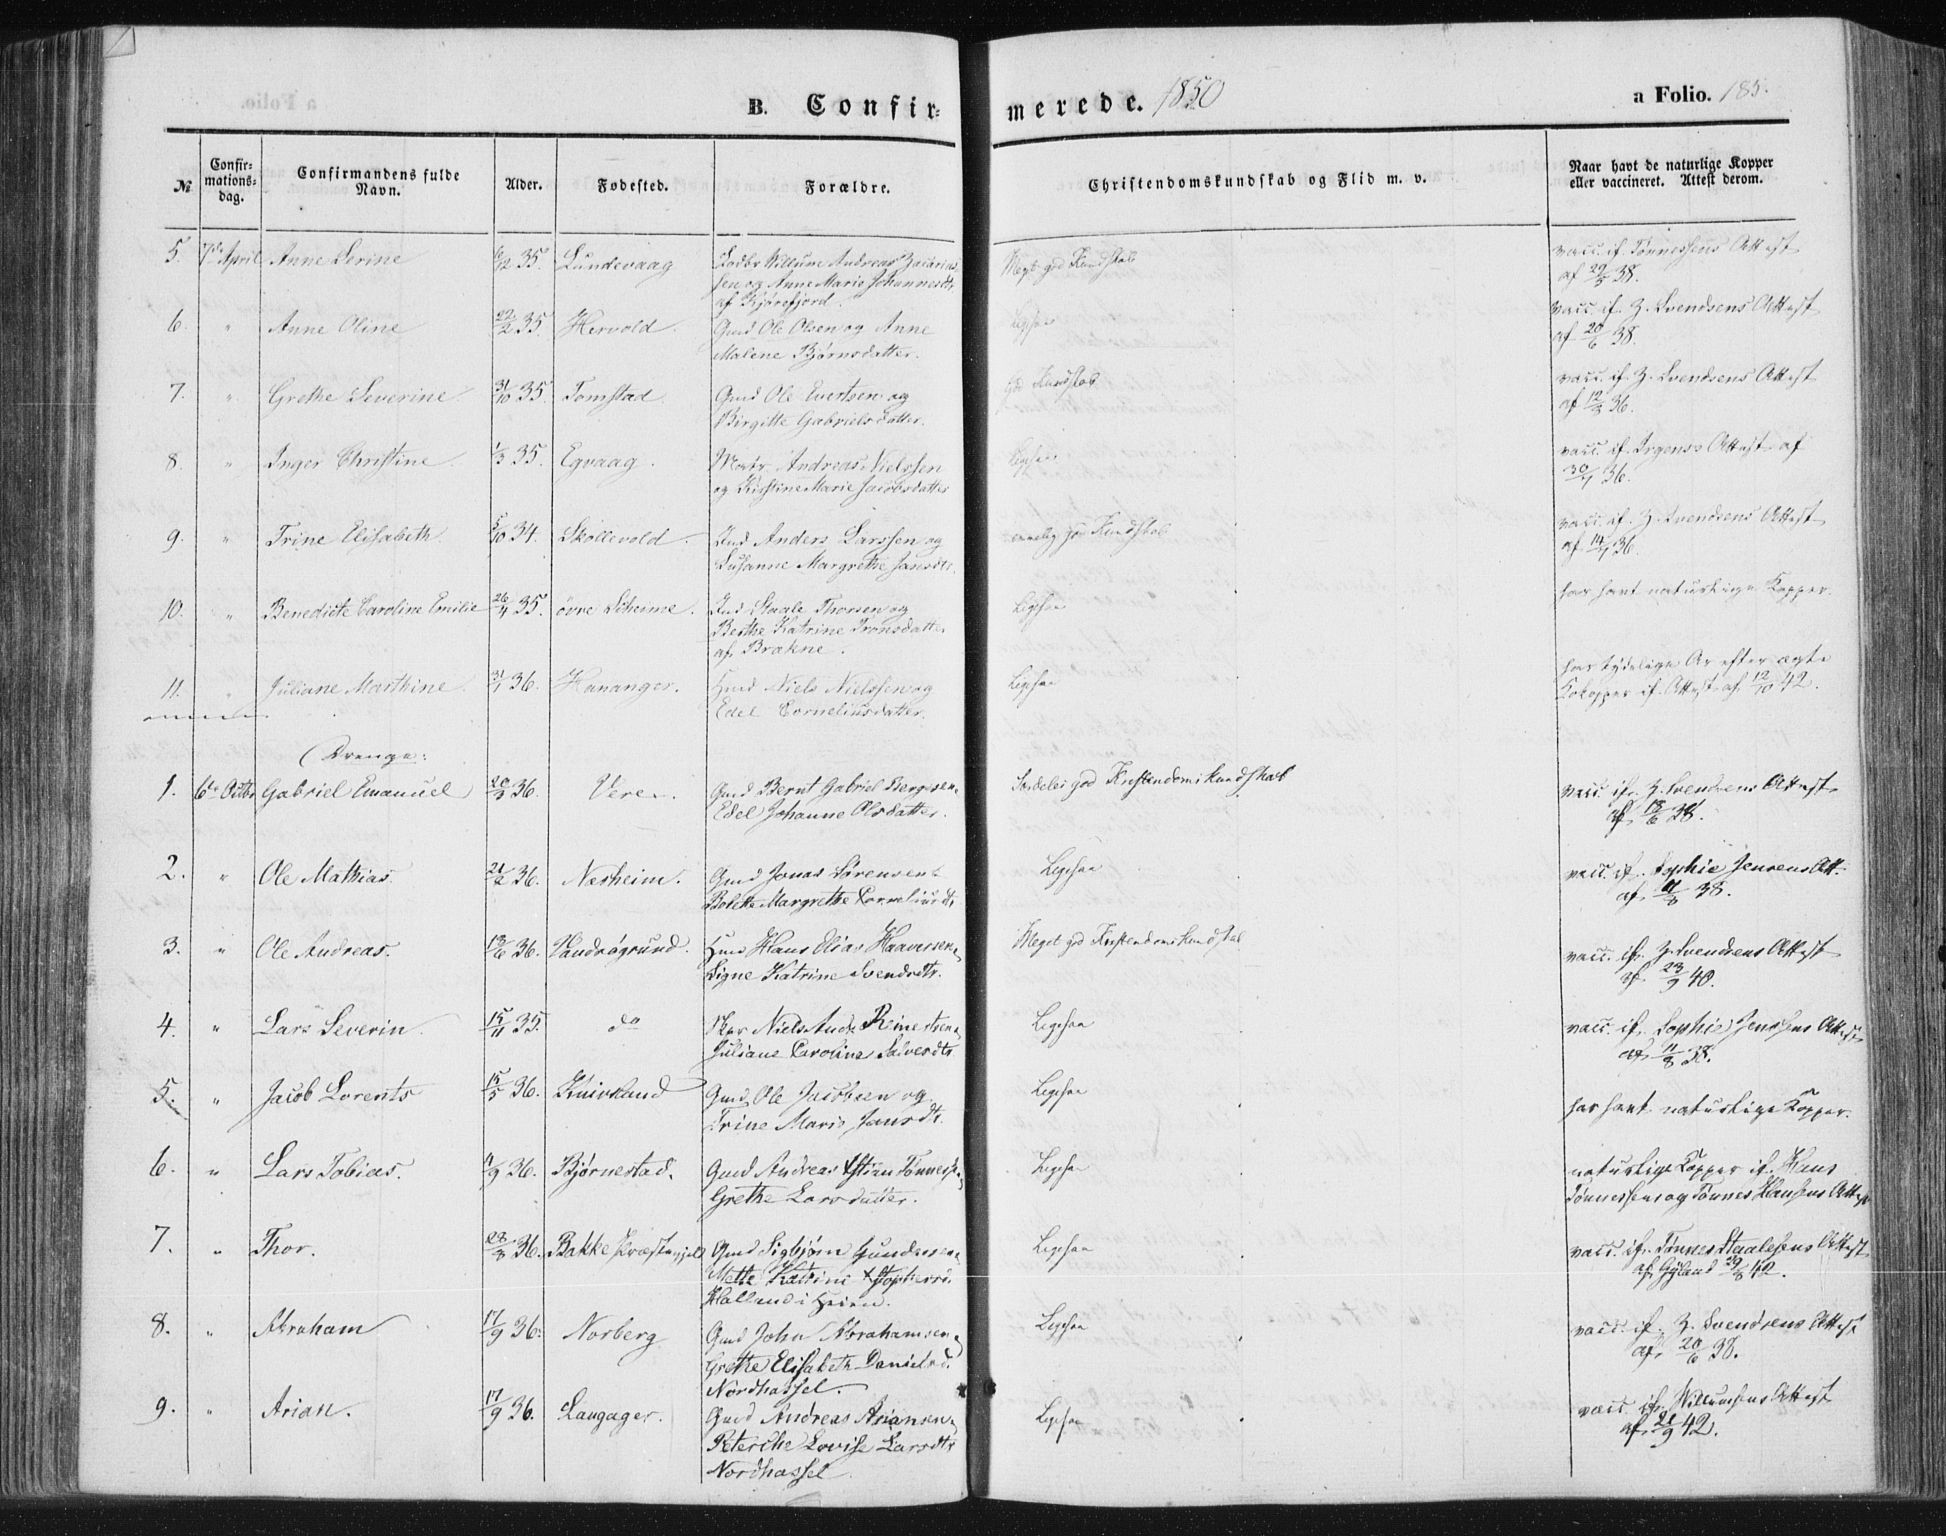 B. Confir-merede. 1850
a Folio. 185.
№
Confir-mations-dag.
Confirmandens fulde Navn.
Alder.
Fødested.
Forældre.
Christendomskundskab og Flid m. v.
Naar havt de naturlige Kopper eller vaccineret. Attest derom.
5. 7de April Anne Serine 6/12 35. Lundevaag
Willum Andreas Zacarias-
sen og Anne Marie Johannesdtr
af Kjørefjord.
Meget god Kundskab
vacc. if. Tønnessens Attest
af 29/5 38.
6. " Anne Oline 22/2 35. Hervold. Gmd Ole Olsen og Anne
Malene Bjørnsdatter.
Ligesaa
vacc. if. Z. Svendsens Attest
af 20/6 38.
7. " Grethe Severine 31/10 35. Tomstad Gmd Ole Evertsen og
Birgitte Gabrielsdatter.
God Kundskab
vacc. if. Z. Svendsens Attest
af 12/8 36.
8. " Inger Christine 1/3 35. Egvaag. Andreas Nielssen
og Kistine Marie Jacobsdatter
Ligesaa
vacc. if. Irgens's Attest af
30/7 36.
9. " Trine Elisabeth 5/10 34. Skollevold. Ind Anders Larssen og
Susanne Margrethe Jansdtr.
temmelig god Kundskab
vacc. if. Z. Svendsens Attest
af 14/7 36.
10. " Benedicte Caroline Emilie 26/4 35. øvre Scheime. Ind Staale Thorsen og
Berthe Katrine Tronsdatter
af Brakne.
Ligesaa
har havt naturlige Kopper.
11. " Juliane Marthine. 31/1 36. Hananger. Huusmd Niels Nielssen og
Edel Corneliusdatter.
Ligesaa
har tydelige Ar efter ægte
Kokopper if. Attest af 12/10 42.
Drenge:
1. 6te Octbr Gabriel Emanuel 20/3 36. Vere. Gmd Bernt Gabriel Bergesen,
Edel Johanne Olsdatter.
Særdeles god Kristendomskundskab
vacc. if. Z. Svendsens Attest
af 13/6 38.
2. " Ole Mathias 21/2 36. Nesheim. Gmd Jonas Sørensen &
Bolette Margrethe Corneliusdtr
Ligesaa
vacc. if. Sophie Jensens Att.
af 11/8 38.
3. " Ole Andreas. 13/6 36. Vandrøgrund. Hmd Hans Elias Haaversen,
Signe Katrine Svendsdtr.
Meget god Kristendomskundskab
vacc. if. Z. Svendsens Attest
af 23/9 40.
4. " Lars Severin. 15/11 35. do Niels Andr Reinertsen,
Juliane Caroline Salvesdtr
Ligesaa
vacc. if. Sophie Jenssens Attest
af 11/8 38.
5. " Jacob Lorents 15/5 36. Knivsland Gmd Ole Jacobsen og
Trine Marie Jansdtr.
Ligesaa
har havt naturlige Kopper.
6. " Lars Tobias. 4/9 36. Bjørnestad. Gmd Andreas Xstian Tønnessen,
Grethe Larsdatter.
Ligesaa
naturlige Kopper if. Hans
Tønnessens og Tønnes Hansens Attest
7. " Thor. 28/8 36. Bakke Præstegjeld Gmd Sigbjørn Gundersen,
Mette Katrine Xstophersd.
Halland i Heien.
Ligesaa
vacc. if. Tønnes Staalesens Attest
af Gyland 29/8 42.
8. " Abraham 17/9 36. Norberg Gmd John Abrahamsen,
Grethe Elisabeth Danielsd.
Nordhassel.
Ligesaa
vacc. if. Z. Svendsens Attest
af 20/6 38.
9. " Arian. 17/9 36. Langager. Gmd Andreas Ariansen,
Peterche Lovise Larsdtr
Nordhassel
Ligesaa
vacc. if. Willumsens Attest
af 21/9 42.